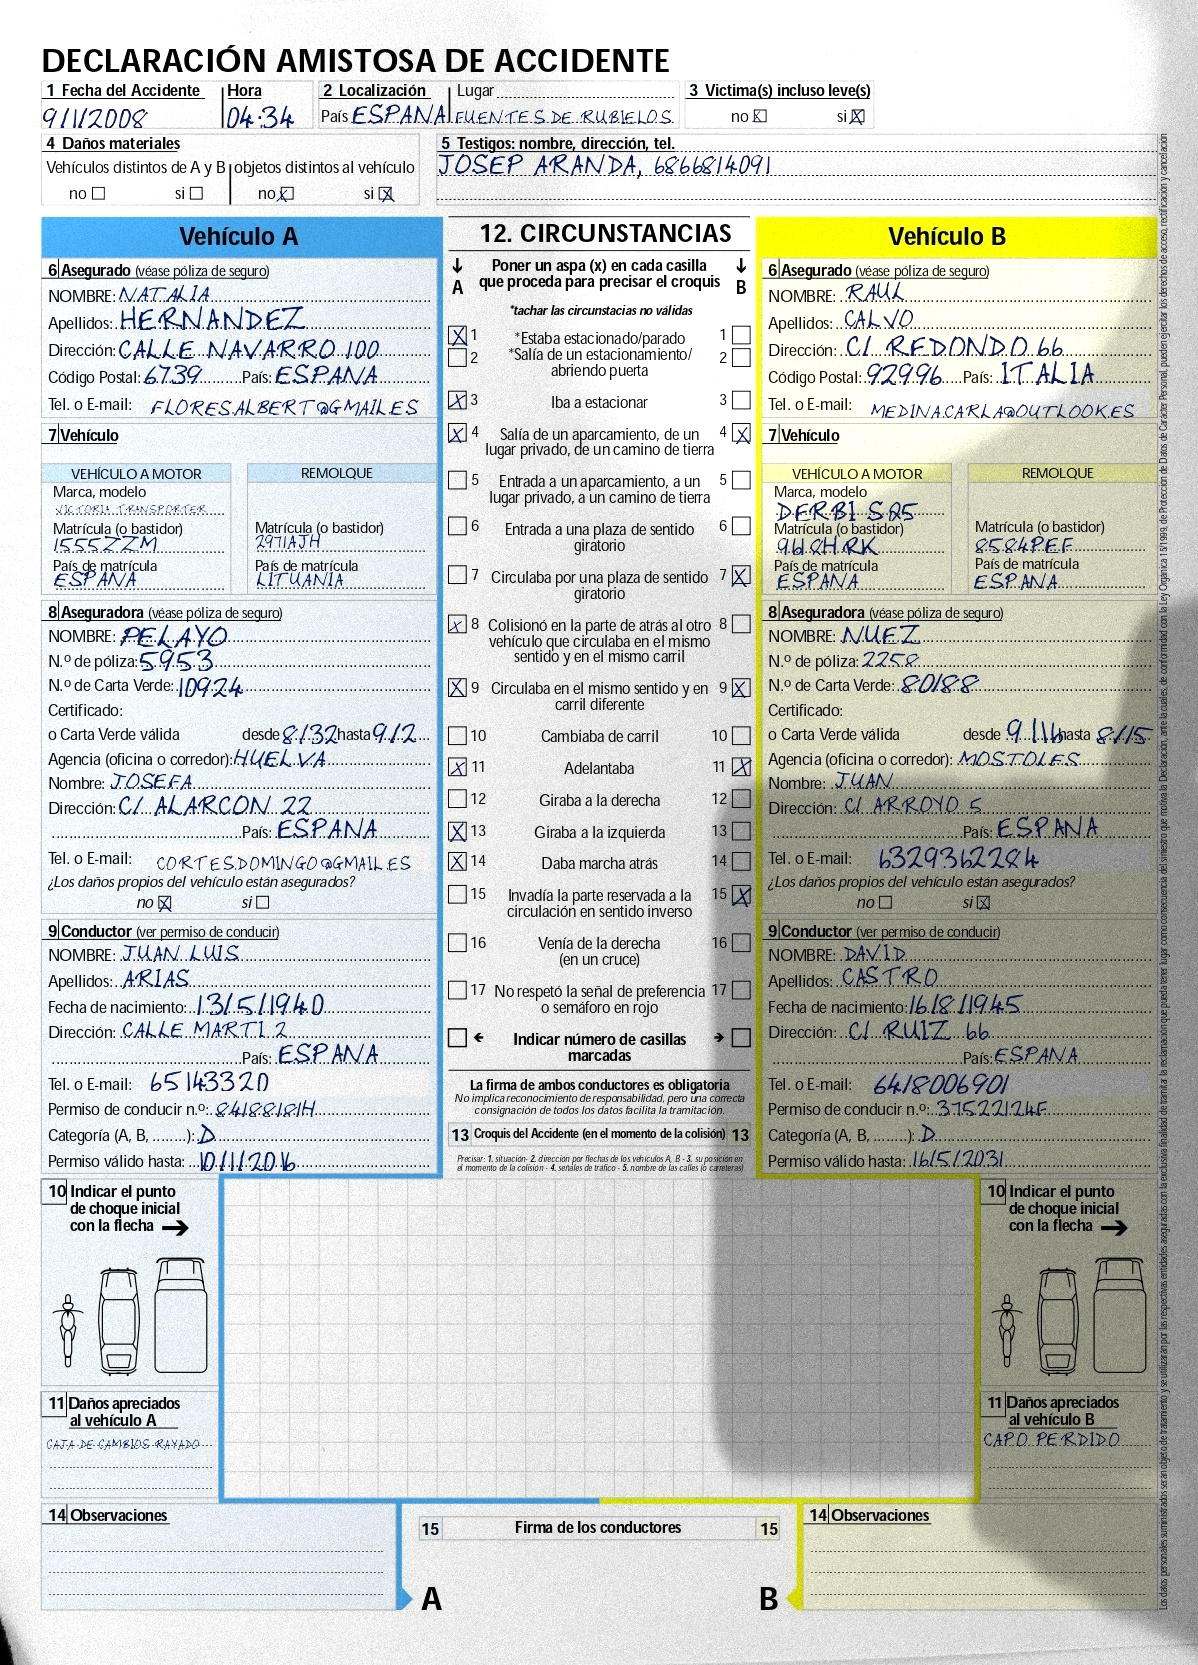 DECLARACIÓN AMISTOSA DE ACCIDENTE
1 Fecha del Accidente Hora 2 Localización Lugar 3 Victima(s) incluso leve(s)
9/1/2008 04:34 País ESPAÑA FUENTES DE RUBIELOS no si
4 Daños materiales
Vehículos distintos de A y B objetos distintos al vehículo
no si no si
5 Testigos: nombre, dirección, tel.
JOSEP ARANDA, 6866814091
Vehículo A
6 Asegurado (véase póliza de seguro)
NOMBRE: NATALIA
Apellidos: HERNANDEZ
Dirección: CALLE NAVARRO 100
Código Postal: 6739 País: ESPAÑA
Tel. o E-mail: FLORESALBERT@GMAIL.ES
7 Vehículo
VEHÍCULO A MOTOR REMOLQUE
Marca, modelo
VICTORIA TRANSPORTER
Matrícula (o bastidor) Matrícula (o bastidor)
1555ZZM 2971AJH
País de matrícula País de matrícula
ESPAÑA LITUANIA
8 Aseguradora (véase póliza de seguro)
NOMBRE: PELAYO
N.º de póliza: 5953
N.º de Carta Verde: 10924
Certificado:
o Carta Verde válida desde 8/32 hasta 9/2
Agencia (oficina o corredor): HUELVA
Nombre: JOSEFA
Dirección: C/ ALARCON 22
País: ESPAÑA
Tel. o E-mail: CORTESDOMINGO@GMAIL.ES
¿Los daños propios del vehículo están asegurados?
no si
9 Conductor (ver permiso de conducir)
NOMBRE: JUAN LUIS
Apellidos: ARIAS
Fecha de nacimiento: 13/5/1940
Dirección: CALLE MARTI 2
País: ESPAÑA
Tel. o E-mail: 65143320
Permiso de conducir n.º: 84188181H
Categoría (A, B, ........): D
Permiso válido hasta: 10/1/2016
12. CIRCUNSTANCIAS
Poner un aspa (x) en cada casilla
A que proceda para precisar el croquis B
*tachar las circunstacias no válidas
1 *Estaba estacionado/parado 1
2 *Salía de un estacionamiento/ 2
abriendo puerta
3 Iba a estacionar 3
4 Salía de un aparcamiento, de un 4
lugar privado, de un camino de tierra
5 Entrada a un aparcamiento, a un 5
lugar privado, a un camino de tierra
6 Entrada a una plaza de sentido 6
giratorio
7 Circulaba por una plaza de sentido 7
giratorio
8 Colisionó en la parte de atrás al otro 8
vehículo que circulaba en el mismo
sentido y en el mismo carril
9 Circulaba en el mismo sentido y en 9
carril diferente
10 Cambiaba de carril 10
11 Adelantaba 11
12 Giraba a la derecha 12
13 Giraba a la izquierda 13
14 Daba marcha atrás 14
15 Invadía la parte reservada a la 15
circulación en sentido inverso
16 Venía de la derecha 16
(en un cruce)
17 No respetó la señal de preferencia 17
o semáforo en rojo
Indicar número de casillas
marcadas
La firma de ambos conductores es obligatoria
No implica reconocimiento de responsabilidad, pero una correcta
consignación de todos los datos facilita la tramitación.
13 Croquis del Accidente (en el momento de la colisión) 13
Precisar: 1. situación- 2. dirección por flechas de los vehículos A, B - 3. su posición en
el momento de la colisión - 4. señales de tráfico - 5. nombre de las calles (o carreteras)
Vehículo B
6 Asegurado (véase póliza de seguro)
NOMBRE: RAUL
Apellidos: CALVO
Dirección: C/ REDONDO 66
Código Postal: 92996 País: ITALIA
Tel. o E-mail: MEDINACARLA@OUTLOOK.ES
7 Vehículo
VEHÍCULO A MOTOR REMOLQUE
Marca, modelo
DERBI SQ5
Matrícula (o bastidor) Matrícula (o bastidor)
9618HRK 8584PEF
País de matrícula País de matrícula
ESPAÑA ESPAÑA
8 Aseguradora (véase póliza de seguro)
NOMBRE: NUEZ
N.º de póliza: 2258
N.º de Carta Verde: 80188
Certificado:
o Carta Verde válida desde 9/16 hasta 8/15
Agencia (oficina o corredor): MOSTOLES
Nombre: JUAN
Dirección: C/ ARROYO 5
País: ESPAÑA
Tel. o E-mail: 6329362284
¿Los daños propios del vehículo están asegurados?
no si
9 Conductor (ver permiso de conducir)
NOMBRE: DAVID
Apellidos: CASTRO
Fecha de nacimiento: 16/8/1945
Dirección: C/ RUIZ 66
País: ESPAÑA
Tel. o E-mail: 6418006901
Permiso de conducir n.º: 37522124F
Categoría (A, B, ........): D
Permiso válido hasta: 16/5/2031
10 Indicar el punto
de choque inicial
con la flecha
11 Daños apreciados
al vehículo A
CAJA DE CAMBIOS RAYADO
10 Indicar el punto
de choque inicial
con la flecha
11 Daños apreciados
al vehículo B
CAPO PERDIDO
14 Observaciones
15 Firma de los conductores 15
A B
14 Observaciones